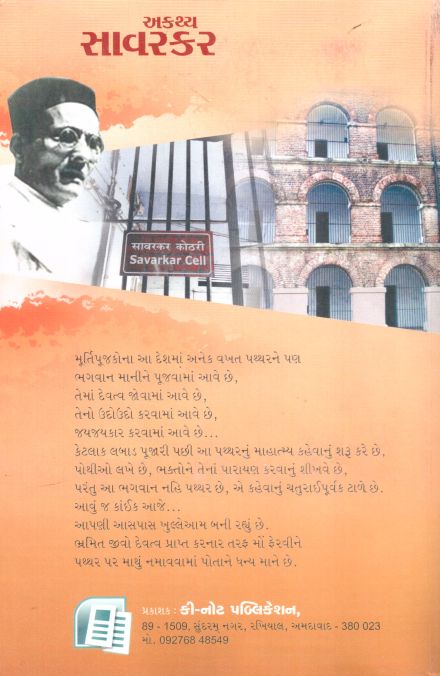 અકથ્ય
સાવરકર
सावरकर कोठरी
Savarkar Cell
મૂર્તિપૂજકોના આ દેશમાં અનેક વખત પથ્થરને પણ
ભગવાન માનીને પૂજવામાં આવે છે,
તેમાં દેવત્વ જોવામાં આવે છે,
તેનો ઉદોઉદો કરવામાં આવે છે,
જયજયકાર કરવામાં આવે છે...
કેટલાક લબાડ પૂજારી પછી આ પથ્થરનું માહાત્મ્ય કહેવાનું શરૂ કરે છે,
પોથીઓ લખે છે, ભક્તોને તેનાં પારાયણ કરવાનું શીખવે છે,
પરંતુ આ ભગવાન નહિ પથ્થર છે, એ કહેવાનું ચતુરાઈપૂર્વક ટાળે છે.
આવું જ કાંઈક આજે...
આપણી આસપાસ ખુલ્લેઆમ બની રહ્યું છે.
ભ્રમિત જીવો દેવત્વ પ્રાપ્ત કરનાર તરફ મોં ફેરવીને
પથ્થર પર માથું નમાવવામાં પોતાને ધન્ય માને છે.
પ્રકાશક : કી-નોટ પબ્લિકેશન,
89 - 1509, સુંદરમ્ નગર, રખિયાલ, અમદાવાદ - 380 023
મો. 092768 48549